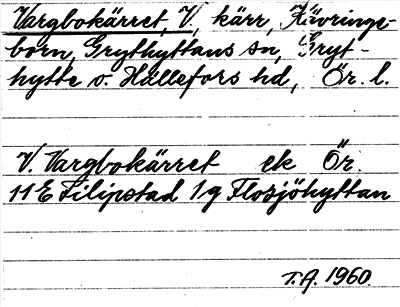 Vargbokärret, V, kärr, Kävringe-
born, Grythyttans sn, Gryt-
hytte o. Hällefors hd, Ör. l.
V. Vargbokärret ek Ör.
11 E Filipstad 1 g Flosjöhyttan
T.A. 1960.